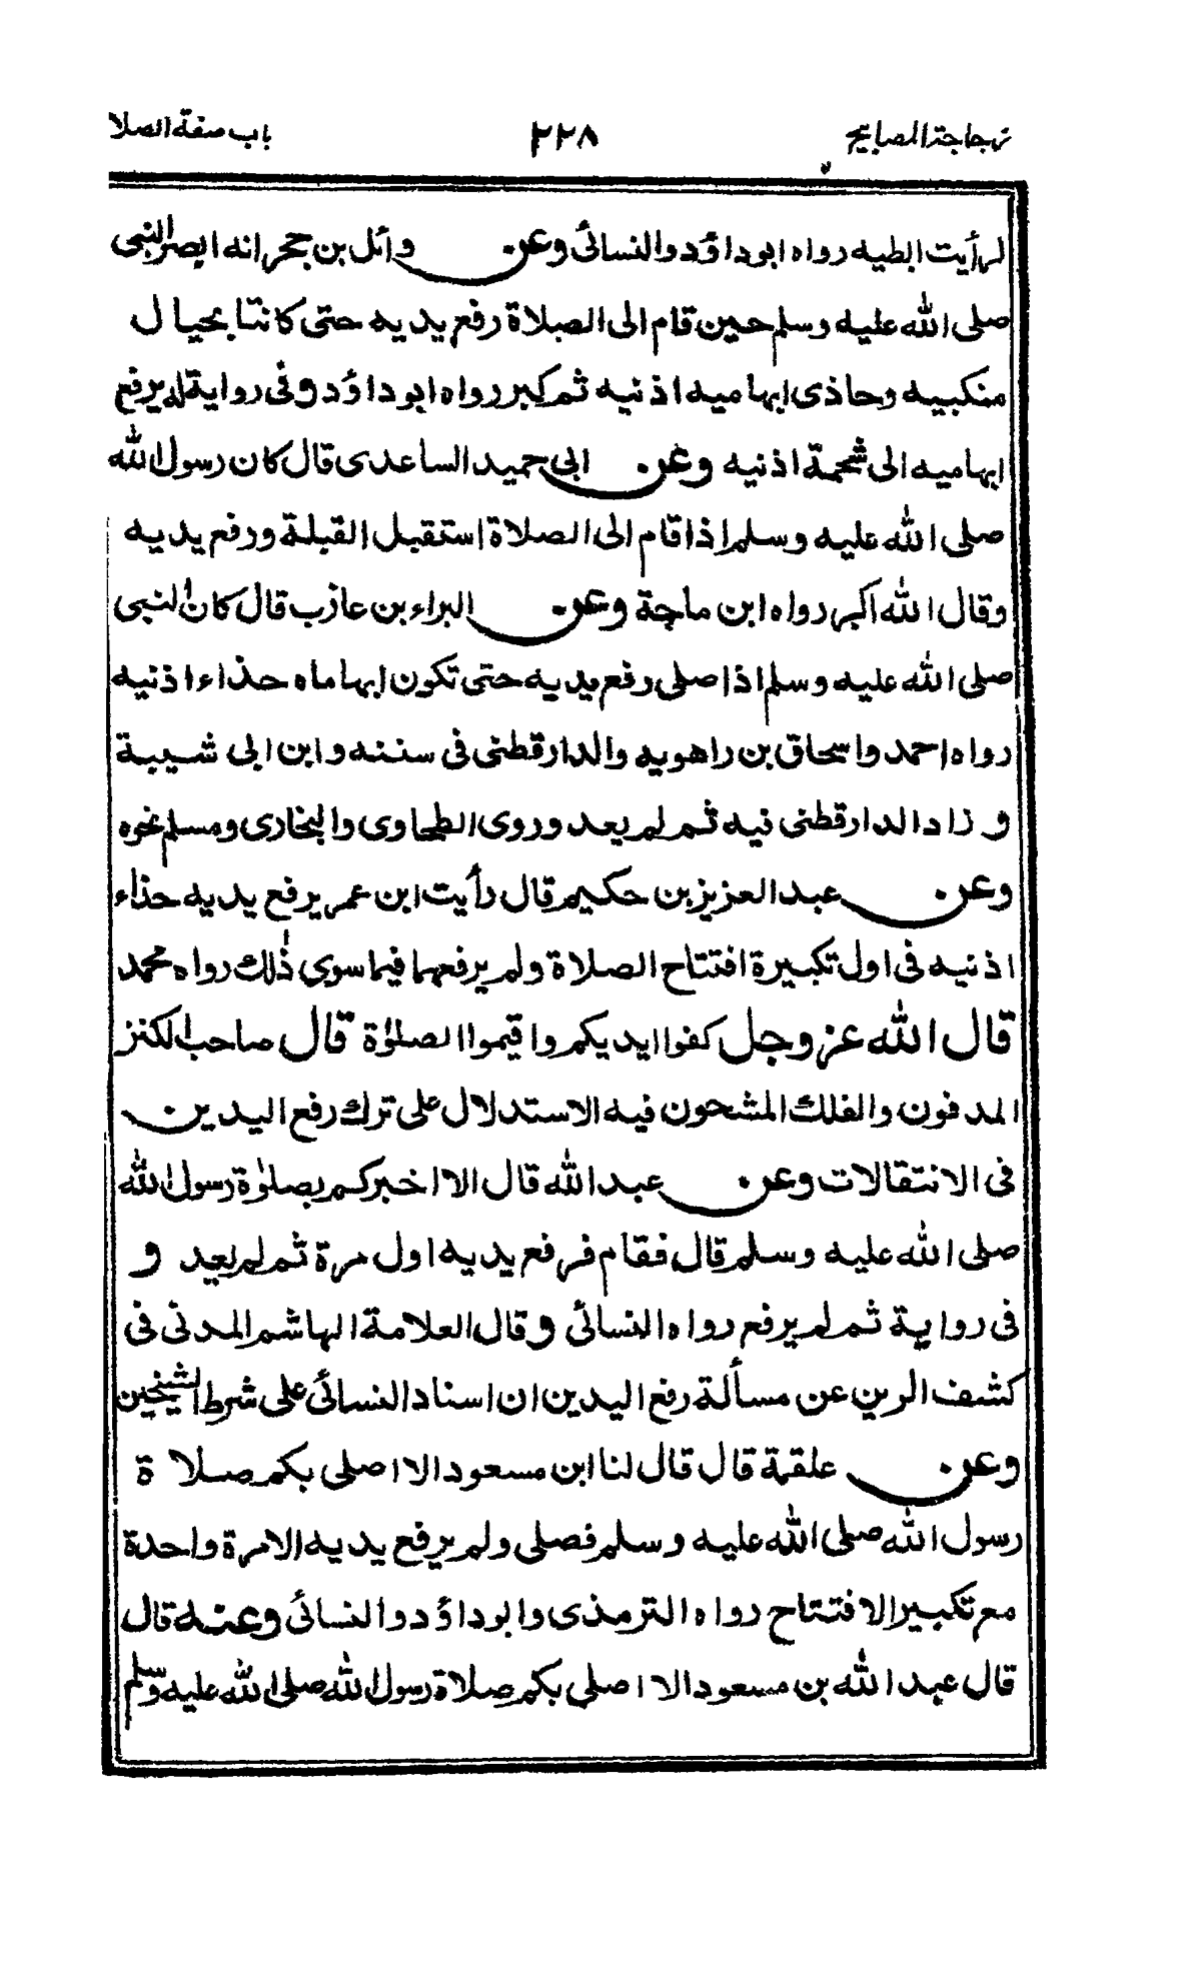 زجاجة المصابيح ٢٢٨ باب صفة الصلا
لرأيت ابطيه رواه ابوداؤد والنسائى وعن وائل بن حجر انه ابصر النبى
صلى الله عليه وسلم حين قام الى الصلاة رفع يديه حتى كانتا بحيال
منكبيه وحاذى ابهاميه اذنيه ثم كبر رواه ابوداؤد وفى رواية له يرفع
ابهاميه الى شحمة اذنيه وعن ابى حميد الساعدى قال كان رسول الله
صلى الله عليه وسلم اذا قام الى الصلاة استقبل القبلة ورفع يديه
وقال الله اكبر رواه ابن ماجة وعن البراء بن عازب قال كان النبى
صلى الله عليه وسلم اذا صلى رفع يديه حتى تكون ابهاماه حذاء اذنيه
رواه احمد واسحاق بن راهويه والدارقطنى فى سننه وابن ابى شيبة
و زاد الدارقطنى فيه ثم لم يعد وروى الطحاوى والبخارى ومسلم نحوه
وعن عبد العزيز بن حكيم قال رأيت ابن عمر يرفع يديه حذاء
اذنيه فى اول تكبيرة افتتاح الصلاة ولم يرفعهما فيما سوى ذٰلك رواه محمد
قال الله عز وجل كفوا ايديكم واقيموا الصلوٰة قال صاحب الكنز
المدفون والفلك المشحون فيه الاستدلال على ترك رفع اليدين
فى الانتقالات وعن عبد الله قال الا اخبركم بصلوٰة رسول الله
صلى الله عليه وسلم قال فقام فرفع يديه اول مرة ثم لم يعيد و
فى رواية ثم لم يرفع رواه النسائى وقال العلامة الهاشم المدنى فى
كشف الرين عن مسألة رفع اليدين ان اسناد النسائى على شرط الشيخين
وعن علقمة قال قال لنا ابن مسعود الا اصلى بكم صلاة
رسول الله صلى الله عليه وسلم فصلى ولم يرفع يديه الا مرة واحدة
مع تكبير الافتتاح رواه الترمذى وابوداؤد والنسائى وعنه قال
قال عبد الله بن مسعود الا اصلى بكم صلاة رسول الله صلى الله عليه وسلم